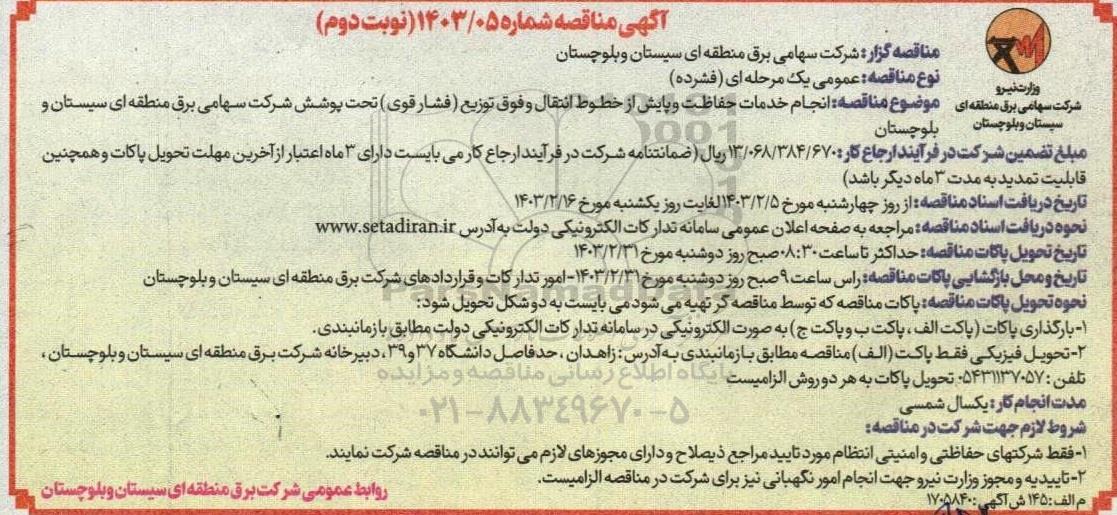 آگهی مناقصه شماره ۱۴۰۳/۰۵ (نوبت دوم)
وزارت نیرو
شرکت سهامی برق منطقه ای
سیستان و بلوچستان
مناقصه گزار: شرکت سهامی برق منطقه ای سیستان و بلوچستان
نوع مناقصه: عمومی یک مرحله ای (فشرده)
موضوع مناقصه: انجام خدمات حفاظت و پایش از خطوط انتقال و فوق توزیع (فشار قوی) تحت پوشش شرکت سهامی برق منطقه ای سیستان و
بلوچستان
مبلغ تضمین شرکت در فرآیند ارجاع کار: ۱۳/۰۶۸/۳۸۴/۶۷۰ ریال (ضمانتنامه شرکت در فرآیند ارجاع کار می بایست دارای ۳ ماه اعتبار از آخرین مهلت تحویل پاکات و همچنین
قابلیت تمدید به مدت ۳ ماه دیگر باشد)
تاریخ دریافت اسناد مناقصه: از روز چهارشنبه مورخ ۱۴۰۳/۲/۵ لغایت روز یکشنبه مورخ ۱۴۰۳/۲/۱۶
نحوه دریافت اسناد مناقصه: مراجعه به صفحه اعلان عمومی سامانه تدارکات الکترونیکی دولت به آدرس www.setadiran.ir
تاریخ تحویل پاکات مناقصه: حداکثر تا ساعت ۰۸:۳۰ صبح روز دوشنبه مورخ ۱۴۰۳/۲/۳۱
تاریخ و محل بازگشایی پاکات مناقصه: راس ساعت ۹ صبح روز دوشنبه مورخ ۱۴۰۳/۲/۳۱- امور تدارکات و قراردادهای شرکت برق منطقه ای سیستان و بلوچستان
نحوه تحویل پاکات مناقصه: پاکات مناقصه که توسط مناقصه گر تهیه می شود می بایست به دو شکل تحویل شود:
۱-بارگذاری پاکات (پاکت الف، پاکت ب و پاکت ج) به صورت الکترونیکی در سامانه تدارکات الکترونیکی دولت مطابق با زمانبندی.
۲-تحویل فیزیکی فقط پاکت (الف) مناقصه مطابق با زمانبندی به آدرس: زاهدان، حدفاصل دانشگاه ۳۷ و ۳۹، دبیرخانه شرکت برق منطقه ای سیستان و بلوچستان،
تلفن: ۰۵۴۳۱۱۳۷۰۵۷ تحویل پاکات به هر دو روش الزامیست
پایگاه اطلاع رسانی مناقصه و مزایده
۰۲۱-۸۸۳۴۹۶۷۰-۵
مدت انجام کار: یکسال شمسی
شروط لازم جهت شرکت در مناقصه:
۱-فقط شرکتهای حفاظتی و امنیتی انتظام مورد تایید مراجع ذیصلاح و دارای مجوزهای لازم می توانند در مناقصه شرکت نمایند.
۲-تاییدیه و مجوز وزارت نیرو جهت انجام امور نگهبانی نیز برای شرکت در مناقصه الزامیست.
م الف: ۱۴۵ ش آگهی: ۱۷۰۵۸۴۰
روابط عمومی شرکت برق منطقه ای سیستان و بلوچستان